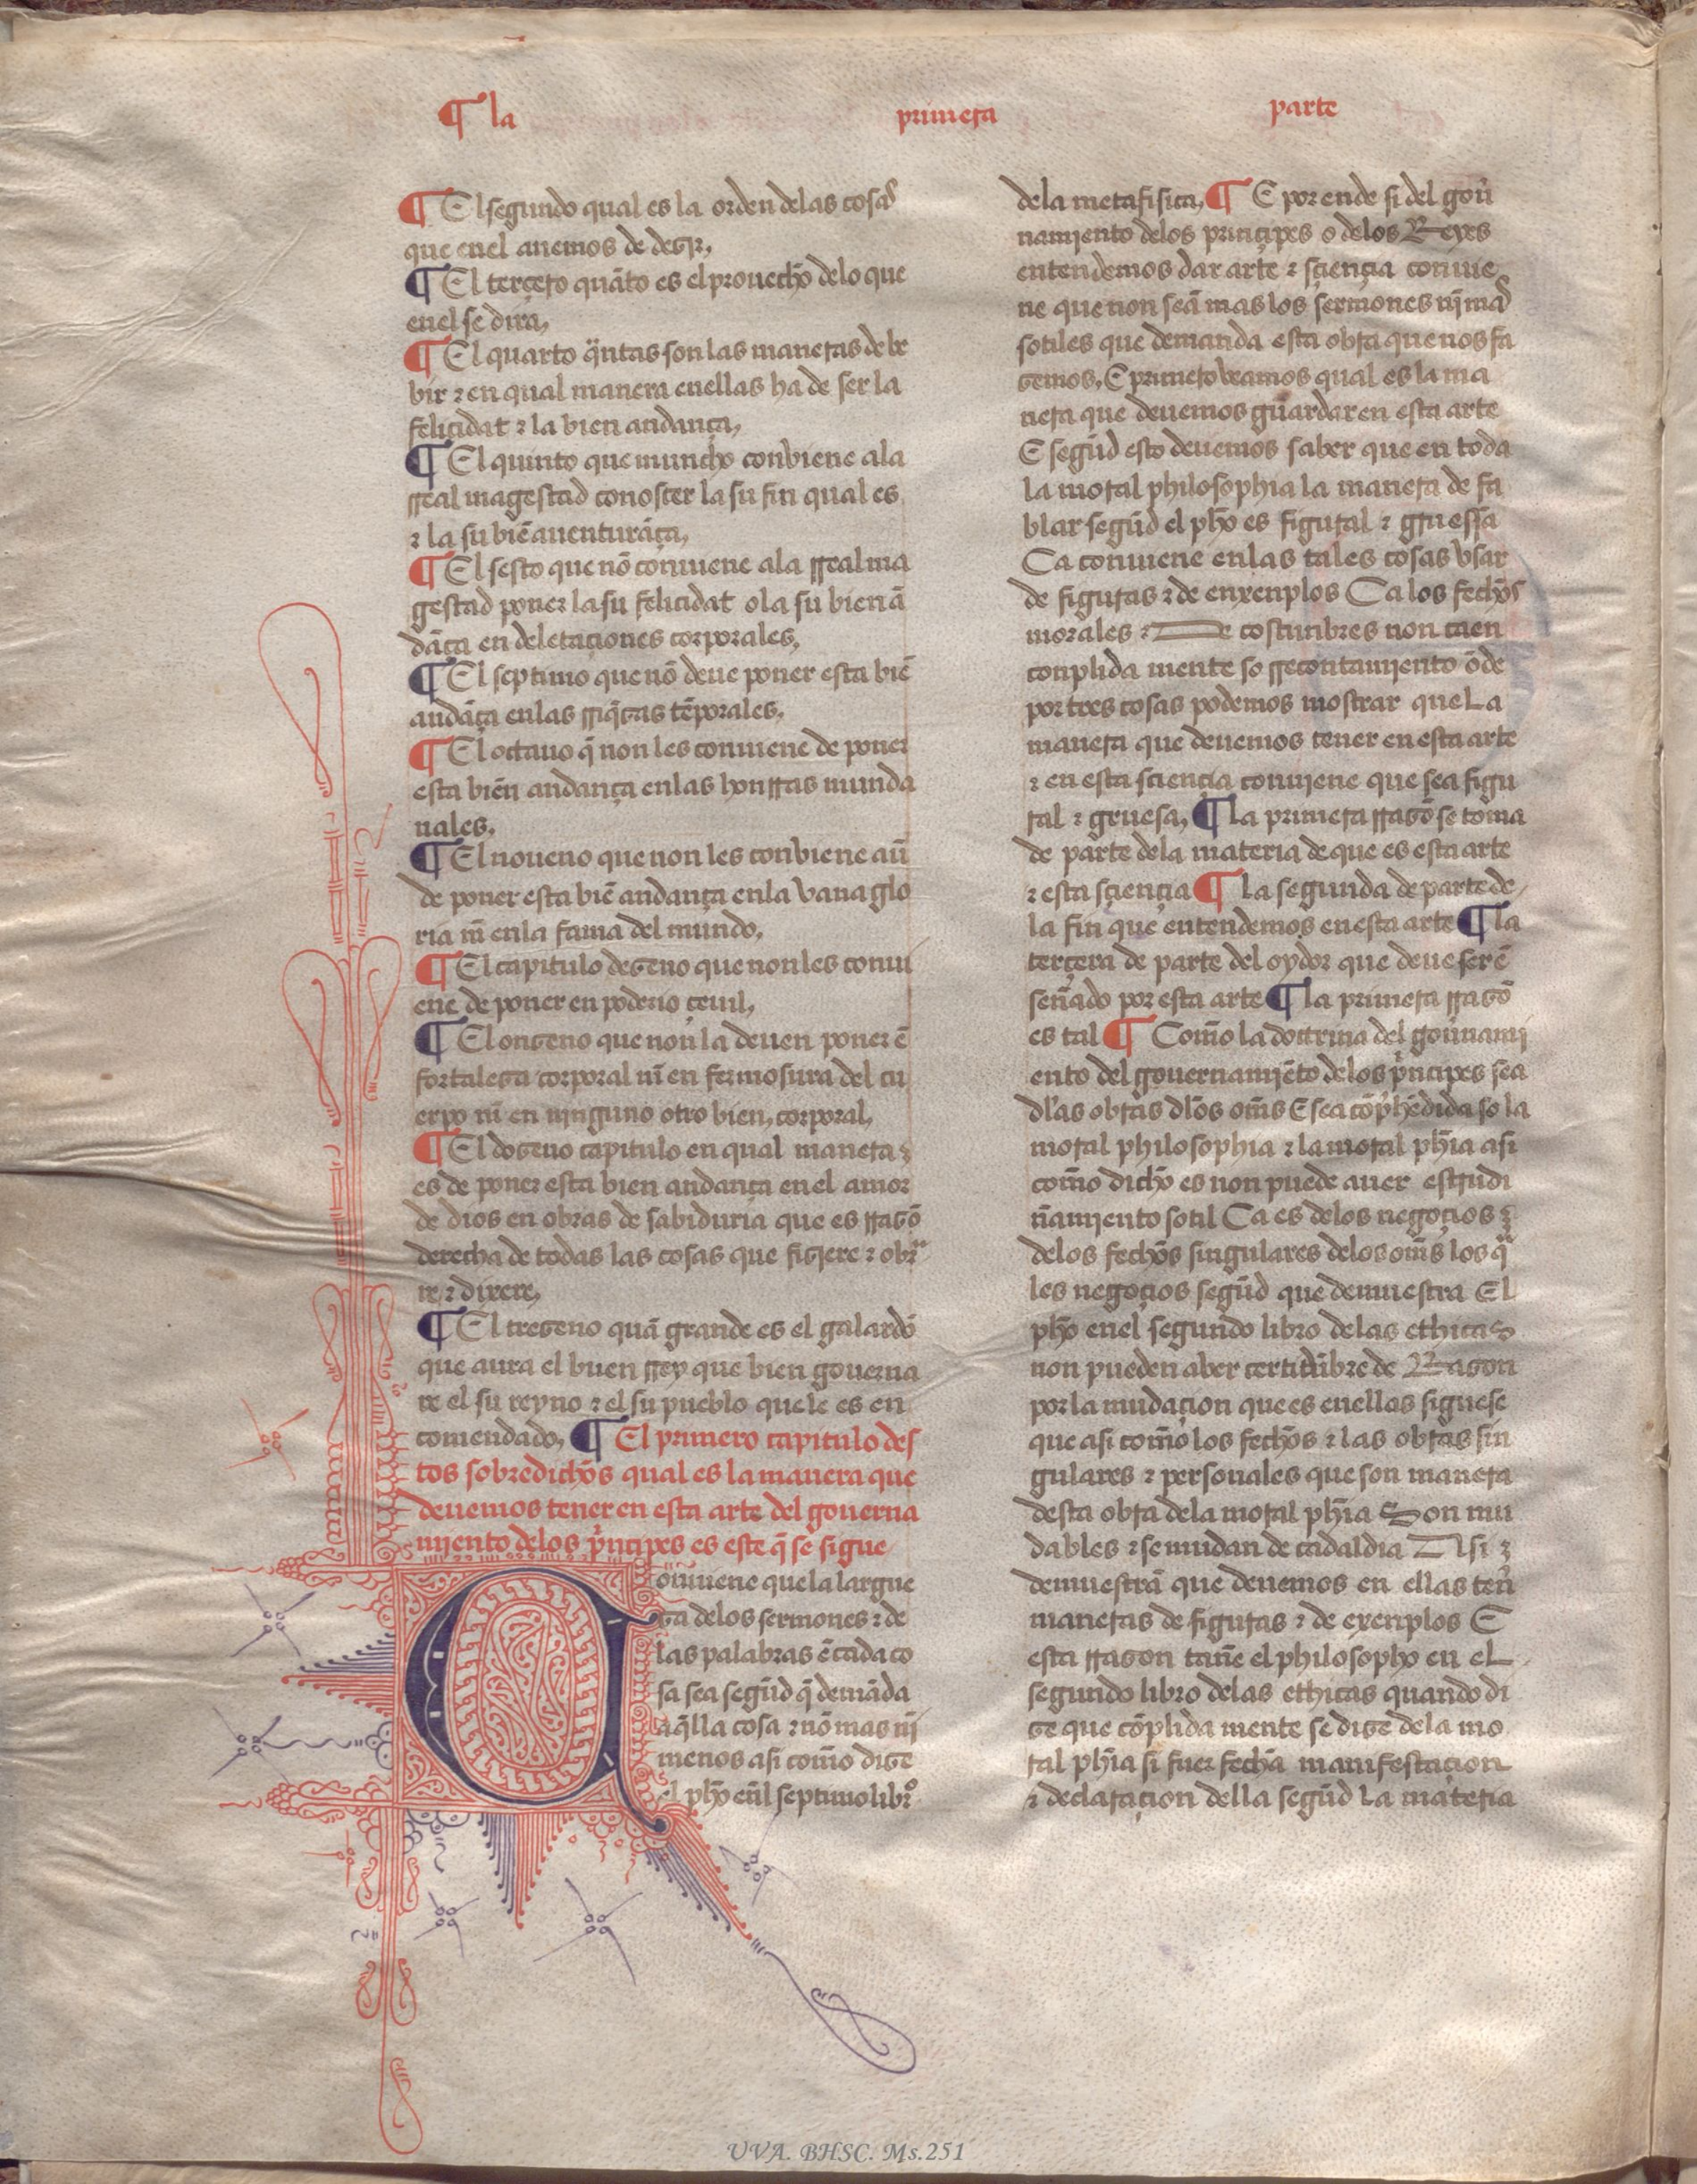 ¶ la primera parte
¶ El segundo qual es la orden delas cosas
que enel auemos de dezir,
¶ El terçero quãto es el prouecho delo que
enel se dira,
¶ El quarto q̃ntas son las maneras de be
bir ⁊ en qual manera enellas ha de ser la
felicidat ⁊ la bien andança,
¶ El quinto que muncho conbiene ala
rreal magestad conoscer la su fin qual es
⁊ la su biẽ auenturãça,
¶ El sesto que nõ conuiene ala rreal ma
gestad poner la su felicidat o la su bien ã
dãça en deletaçiones corporales,
¶ El septimo que nõ deue poner esta biẽ
andãça enlas rriq̃zas tẽporales,
¶ El octauo q̃ non les conuiene de poner
esta bien andança enlas honrras munda
nales,
¶ El noueno que non les conbiene aũ
de poner esta biẽ andança enla vana glo
ria nĩ enla fama del mundo,
¶ El capitulo dezeno que non les conui
ene de poner en poderio çeuil,
¶ El onzeno que non la deuen poner ẽ
fortaleza corporal nĩ en fermosura del cu
erpo nĩ en ninguno otro bien, corporal,
¶ El dozeno capitulo en qual manera
es de poner esta bien andança en el amor
de dios en obras de sabiduria que es rrazõ
derecha de todas las cosas que fiziere ⁊ obra
re ⁊ dixere,
¶ El trezeno quã grande es el galardõ
que aura el buen rrey que bien gouerna
re el su reyno ⁊ el su pueblo que le es en
comendado, ¶ El primero capitulo des
tos sobredichos qual es la manera que
deuemos tener en esta arte del gouerna
miento delos prinçipes es este q̃ se sigue
Conuiene que la largue
za delos sermones ⁊ de
las palabras ẽ cada co
sa sea segũd q̃ demãda
aq̃lla cosa ⁊ nõ mas nĩ
menos asi como dize
el pho enl septimo libro
dela metafisica, ¶ E por ende si del gou̾
namiento delos prinçipes o delos Reyes
entendemos dar arte ⁊ sçiençia conuie
ne que non seã mas los sermones nĩ mas
sotiles que demanda esta obra que nos fa
zemos, E primero veamos qual es la ma
nera que deuemos guardar en esta arte
E segũd esto deuemos saber que en toda
la moral philosophia la manera de fa
blar segũd el pho es figural ⁊ gruessa
Ca conuiene enlas tales cosas vsar
de figuras ⁊ de enxenplos Ca los fechos
morales ⁊ De costunbres non caen
conplida mente so rrecontamiento õde
por tres cosas podemos mostrar que La
manera que deuemos tener en esta arte
⁊ en esta sciençia conuiene que sea figu
ral ⁊ gruesa, ¶ la primera rrazõ se toma
de parte dela materia de que es esta arte
⁊ esta sçiençia ¶ la segunda de parte de
la fin que entendemos en esta arte ¶ la
terçera de parte del oydor que deue ser ẽ
señado por esta arte ¶ la primera rrazõ
es tal ¶ Como la dottrina del gou̾nami
ento del gouernamiẽto delos prinçipes sea
dlas obras dlos om̃s E sea cõp̃hẽdida so la
moral philosophia ⁊ la moral phĩa asi
como dicho es non puede auer escrudi
ñamiento sotil Ca es delos negoçios ⁊
delos fechos singulares delos om̃s los qua
les negoçios segũd que demuestra El
pho enel segundo libro delas ethicas
non pueden aber certidũbre de Razon
por la mudaçion que es enellas siguese
que asi como los fechos ⁊ las obras sin
gulares ⁊ personales que son manera
desta obra dela moral phĩa Son mu
dables ⁊ se mudan de cadaldia Asi ⁊
demuestrã que deuemos en ellas ten̾
maneras de figuras ⁊ de exenplos E
esta rrazon tañe el philosopho en eL
segundo libro delas ethicas quando di
ze que cõplida mente se dize dela mo
ral phĩa si fuer fecha manifestaçion
⁊ declaraçion della segũd La materia
UVA. BHSC. Ms.251